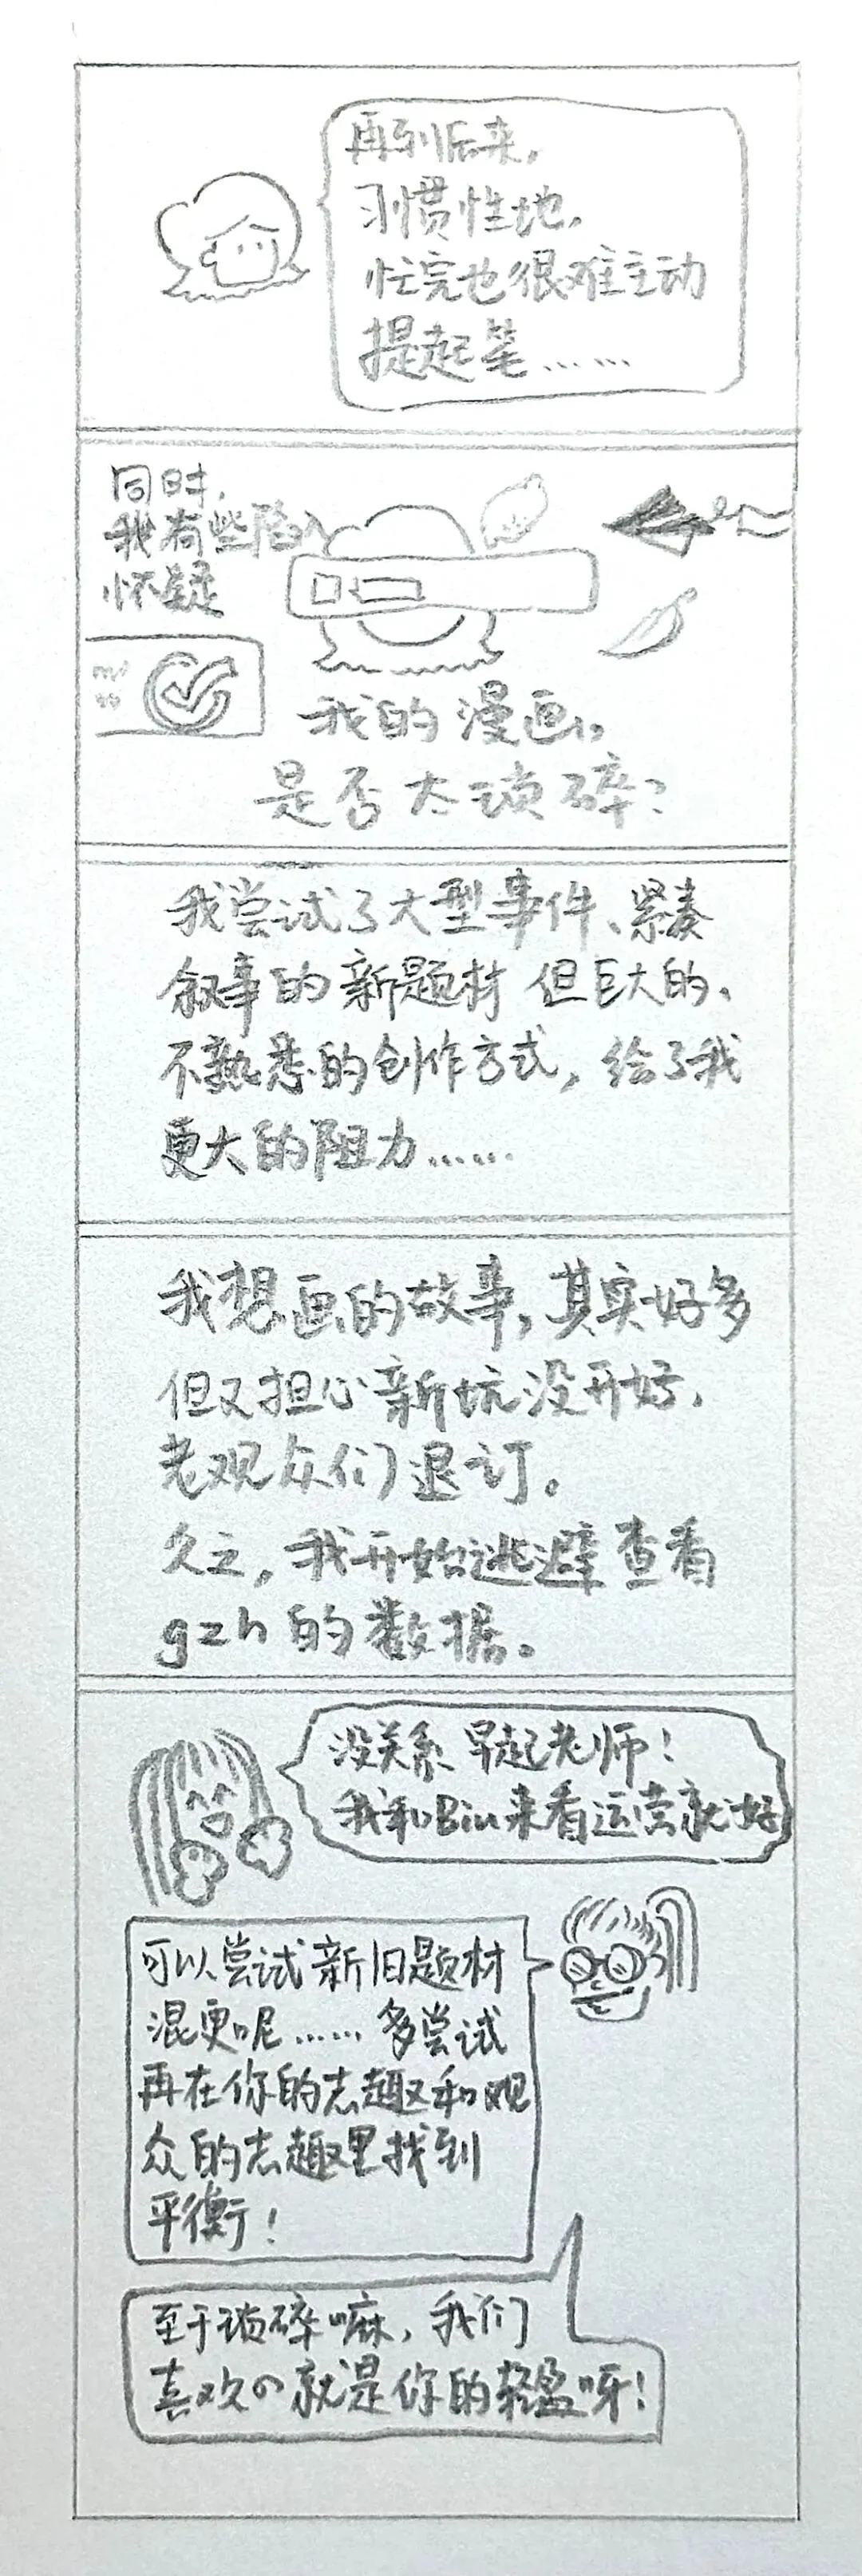 再到后来，
习惯性地，
忙完也很难主动
提起笔……
同时，
我有些陷入
怀疑
我的漫画，
是否太琐碎？
我尝试了大型事件、紧凑
叙事的新题材 但巨大的、
不熟悉的创作方式，给了我
更大的阻力……
我想画的故事，其实好多
但又担心新坑没开好，
老观众们退订。
久之，我开始逃避查看
gzh的数据。
没关系 早起老师！
我和Biu来看运营就好
可以尝试新旧题材
混更呢……多尝试
再在你的志趣和观
众的志趣里找到
平衡！
至于琐碎嘛，我们
喜欢の就是你的轻盈呀！